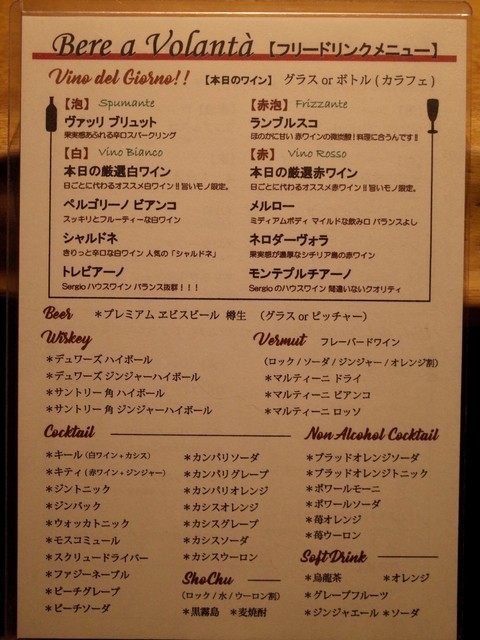 Bere a Volantà 【フリードリンクメニュー】
Vino del Giorno!! 【本日のワイン】 グラス or ボトル ( カラフェ )
【泡】 Spumante
ヴァッリ ブリュット
果実感あふれる辛口スパークリング
【白】 Vino Bianco
本日の厳選白ワイン
日ごとに代わるオススメ白ワイン!! 旨いモノ限定。
ペルゴリーノ ビアンコ
スッキリとフルーティーな白ワイン
シャルドネ
きりっと辛口な白ワイン 人気の「シャルドネ」
トレビアーノ
Sergio ハウスワイン バランス抜群！！！
【赤泡】 Frizzante
ランブルスコ
ほのかに甘い 赤ワインの微炭酸！料理に合うんです!!
【赤】 Vino Rosso
本日の厳選赤ワイン
日ごとに代わるオススメ赤ワイン!! 旨いモノ限定。
メルロー
ミディアムボディ マイルドな飲み口 バランスよし
ネロダーヴォラ
果実感が濃厚なシチリア産の赤ワイン
モンテプルチアーノ
Sergio のハウスワイン 間違いないクオリティ
Beer ＊プレミアム ヱビスビール 樽生 （グラス or ピッチャー）
Wiskey
＊デュワーズ ハイボール
＊デュワーズ ジンジャーハイボール
＊サントリー 角 ハイボール
＊サントリー 角 ジンジャーハイボール
Vermut フレーバードワイン
（ロック / ソーダ / ジンジャー / オレンジ割）
＊マルティーニ ドライ
＊マルティーニ ビアンコ
＊マルティーニ ロッソ
Cocktail
＊キール（白ワイン + カシス）
＊キティ ( 赤ワイン + ジンジャー)
＊ジントニック
＊ジンバック
＊ウォッカトニック
＊モスコミュール
＊スクリュードライバー
＊ファジーネーブル
＊ピーチグレープ
＊ピーチソーダ
＊カンパリソーダ
＊カンパリグレープ
＊カンパリオレンジ
＊カシスオレンジ
＊カシスグレープ
＊カシスソーダ
＊カシスウーロン
ShoChu
（ロック / 水 / ウーロン割）
＊黒霧島 ＊麦焼酎
Non Alcohol Cocktail
＊ブラッドオレンジソーダ
＊ブラッドオレンジトニック
＊ボワールモーニ
＊ボワールソーダ
＊苺オレンジ
＊苺ウーロン
Soft Drink
＊烏龍茶 ＊オレンジ
＊グレープフルーツ
＊ジンジャエール ＊ソーダ